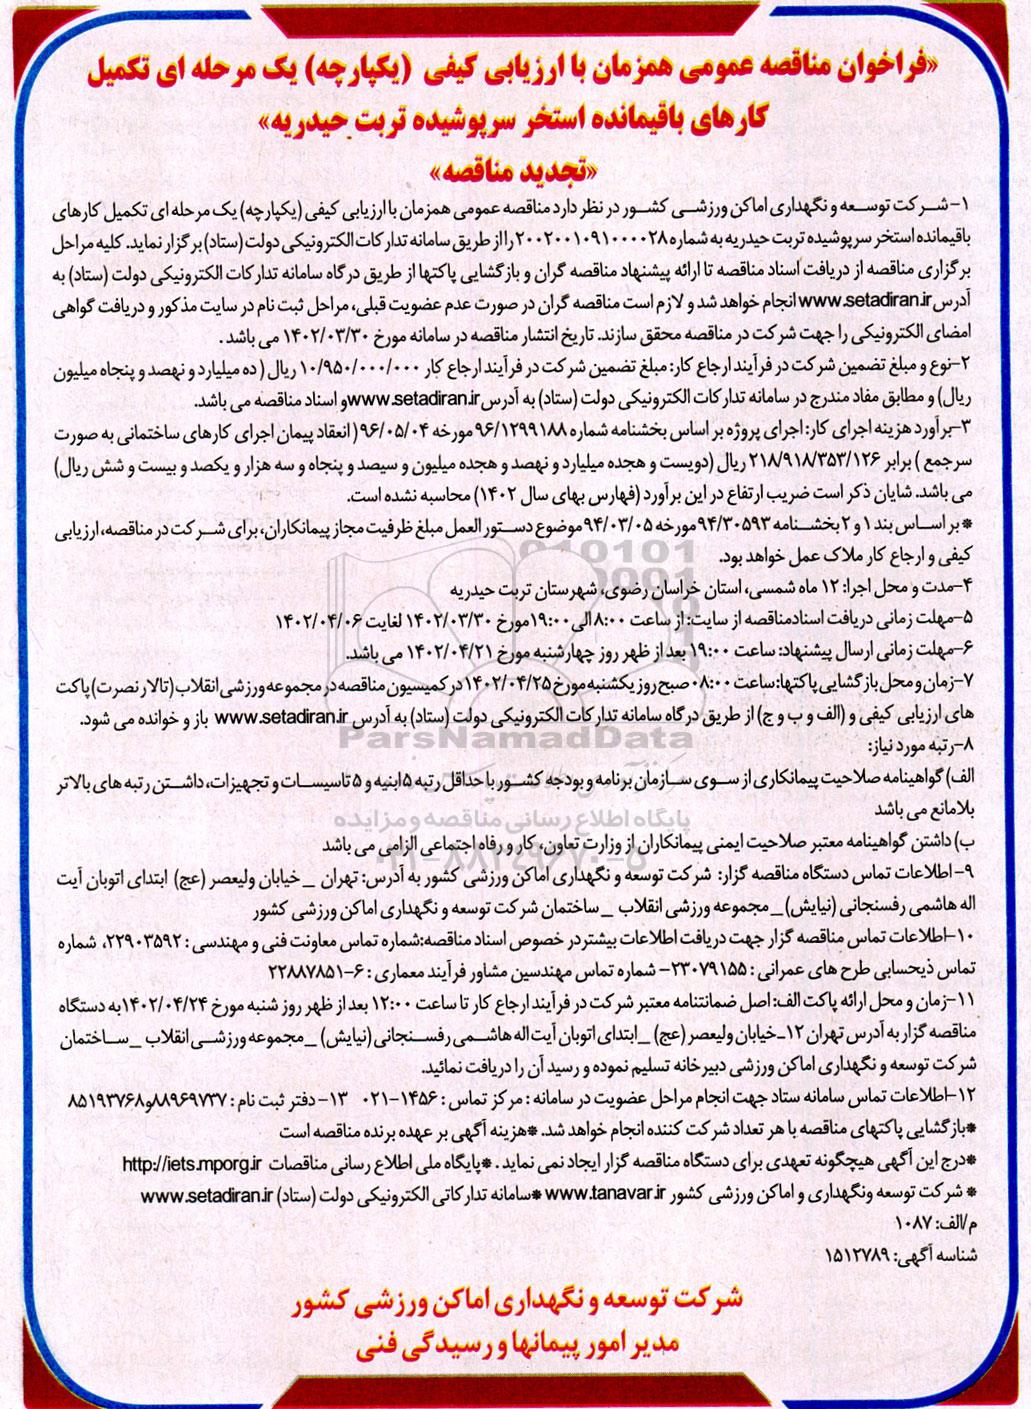 «فراخوان مناقصه عمومی همزمان با ارزیابی کیفی (یکپارچه) یک مرحله ای تکمیل
کارهای باقیمانده استخر سرپوشیده تربت حیدریه»
«تجدید مناقصه»
۱- شرکت توسعه و نگهداری اماکن ورزشی کشور در نظر دارد مناقصه عمومی همزمان با ارزیابی کیفی (یکپارچه) یک مرحله ای تکمیل کارهای
باقیمانده استخر سرپوشیده تربت حیدریه به شماره ۲۰۰۲۰۰۱۰۹۱۰۰۰۰۲۸ را از طریق سامانه تدارکات الکترونیکی دولت (ستاد) برگزار نماید. کلیه مراحل
برگزاری مناقصه از دریافت اسناد مناقصه تا ارائه پیشنهاد مناقصه گران و بازگشایی پاکتها از طریق درگاه سامانه تدارکات الکترونیکی دولت (ستاد) به
آدرس www.setadiran.ir انجام خواهد شد و لازم است مناقصه گران در صورت عدم عضویت قبلی، مراحل ثبت نام در سایت مذکور و دریافت گواهی
امضای الکترونیکی را جهت شرکت در مناقصه محقق سازند. تاریخ انتشار مناقصه در سامانه مورخ ۱۴۰۲/۰۳/۳۰ می باشد .
۲-نوع و مبلغ تضمین شرکت در فرآیند ارجاع کار: مبلغ تضمین شرکت در فرآیند ارجاع کار ۱۰/۹۵۰/۰۰۰/۰۰۰ ریال ( ده میلیارد و نهصد و پنجاه میلیون
ریال) و مطابق مفاد مندرج در سامانه تدارکات الکترونیکی دولت (ستاد) به آدرس www.setadiran.ir و اسناد مناقصه می باشد.
۳-برآورد هزینه اجرای کار: اجرای پروژه بر اساس بخشنامه شماره ۹۶/۱۲۹۹۱۸۸ مورخه ۹۶/۰۵/۰۴ ( انعقاد پیمان اجرای کارهای ساختمانی به صورت
سرجمع ) برابر ۲۱۸/۹۱۸/۳۵۳/۱۲۶ ریال (دویست و هجده میلیارد و نهصد و هجده میلیون و سیصد و پنجاه و سه هزار و یکصد و بیست و شش ریال)
می باشد. شایان ذکر است ضریب ارتفاع در این برآورد (فهارس بهای سال ۱۴۰۲) محاسبه نشده است.
* بر اساس بند ۱ و ۲ بخشنامه ۹۴/۳۰۵۹۳ مورخه ۹۴/۰۳/۰۵ موضوع دستور العمل مبلغ ظرفیت مجاز پیمانکاران، برای شرکت در مناقصه، ارزیابی
کیفی و ارجاع کار ملاک عمل خواهد بود.
۴-مدت و محل اجرا: ۱۲ ماه شمسی، استان خراسان رضوی، شهرستان تربت حیدریه
۵-مهلت زمانی دریافت اسناد مناقصه از سایت: از ساعت ۸:۰۰ الی ۱۹:۰۰ مورخ ۱۴۰۲/۰۳/۳۰ لغایت ۱۴۰۲/۰۴/۰۶
۶-مهلت زمانی ارسال پیشنهاد: ساعت ۱۹:۰۰ بعد از ظهر روز چهارشنبه مورخ ۱۴۰۲/۰۴/۲۱ می باشد.
۷-زمان و محل بازگشایی پاکتها: ساعت ۰۸:۰۰ صبح روز یکشنبه مورخ ۱۴۰۲/۰۴/۲۵ در کمیسیون مناقصه در مجموعه ورزشی انقلاب (تالار نصرت) پاکت
های ارزیابی کیفی و (الف و ب و ج) از طریق درگاه سامانه تدارکات الکترونیکی دولت (ستاد) به آدرس www.setadiran.ir باز و خوانده می شود.
۸-رتبه مورد نیاز:
الف) گواهینامه صلاحیت پیمانکاری از سوی سازمان برنامه و بودجه کشور با حداقل رتبه ۵ ابنیه و ۵ تاسیسات و تجهیزات، داشتن رتبه های بالاتر
بلامانع می باشد
ب) داشتن گواهینامه معتبر صلاحیت ایمنی پیمانکاران از وزارت تعاون، کار و رفاه اجتماعی الزامی می باشد
۹-اطلاعات تماس دستگاه مناقصه گزار: شرکت توسعه و نگهداری اماکن ورزشی کشور به آدرس: تهران _ خیابان ولیعصر (عج) ابتدای اتوبان آیت
اله هاشمی رفسنجانی (نیایش) _ مجموعه ورزشی انقلاب _ ساختمان شرکت توسعه و نگهداری اماکن ورزشی کشور
۱۰-اطلاعات تماس مناقصه گزار جهت دریافت اطلاعات بیشتر در خصوص اسناد مناقصه: شماره تماس معاونت فنی و مهندسی : ۲۲۹۰۳۵۹۲، شماره
تماس ذیحسابی طرح های عمرانی : ۲۳۰۷۹۱۵۵- شماره تماس مهندسین مشاور فرآیند معماری : ۶-۲۲۸۸۷۸۵۱
۱۱-زمان و محل ارائه پاکت الف: اصل ضمانتنامه معتبر شرکت در فرآیند ارجاع کار تا ساعت ۱۲:۰۰ بعد از ظهر روز شنبه مورخ ۱۴۰۲/۰۴/۲۴ به دستگاه
مناقصه گزار به آدرس تهران ۱۲_خیابان ولیعصر (عج) _ ابتدای اتوبان آیت اله هاشمی رفسنجانی (نیایش) _ مجموعه ورزشی انقلاب _ ساختمان
شرکت توسعه و نگهداری اماکن ورزشی دبیرخانه تسلیم نموده و رسید آن را دریافت نمائید.
۱۲-اطلاعات تماس سامانه ستاد جهت انجام مراحل عضویت در سامانه : مرکز تماس : ۱۴۵۶-۰۲۱ ۱۳- دفتر ثبت نام : ۸۸۹۶۹۷۳۷ و ۸۵۱۹۳۷۶۸
*بازگشایی پاکتهای مناقصه با هر تعداد شرکت کننده انجام خواهد شد. *هزینه آگهی بر عهده برنده مناقصه است
*درج این آگهی هیچگونه تعهدی برای دستگاه مناقصه گزار ایجاد نمی نماید . *پایگاه ملی اطلاع رسانی مناقصات http://iets.mporg.ir
* شرکت توسعه ونگهداری و اماکن ورزشی کشور www.tanavar.ir *سامانه تدارکاتی الکترونیکی دولت (ستاد) www.setadiran.ir
م/الف: ۱۰۸۷
شناسه آگهی: ۱۵۱۲۷۸۹
شرکت توسعه و نگهداری اماکن ورزشی کشور
مدیر امور پیمانها و رسیدگی فنی
ParsNamadData
پایگاه اطلاع رسانی مناقصه و مزایده
۰۲۱-۸۸۳۴۹۶۷۰-۵